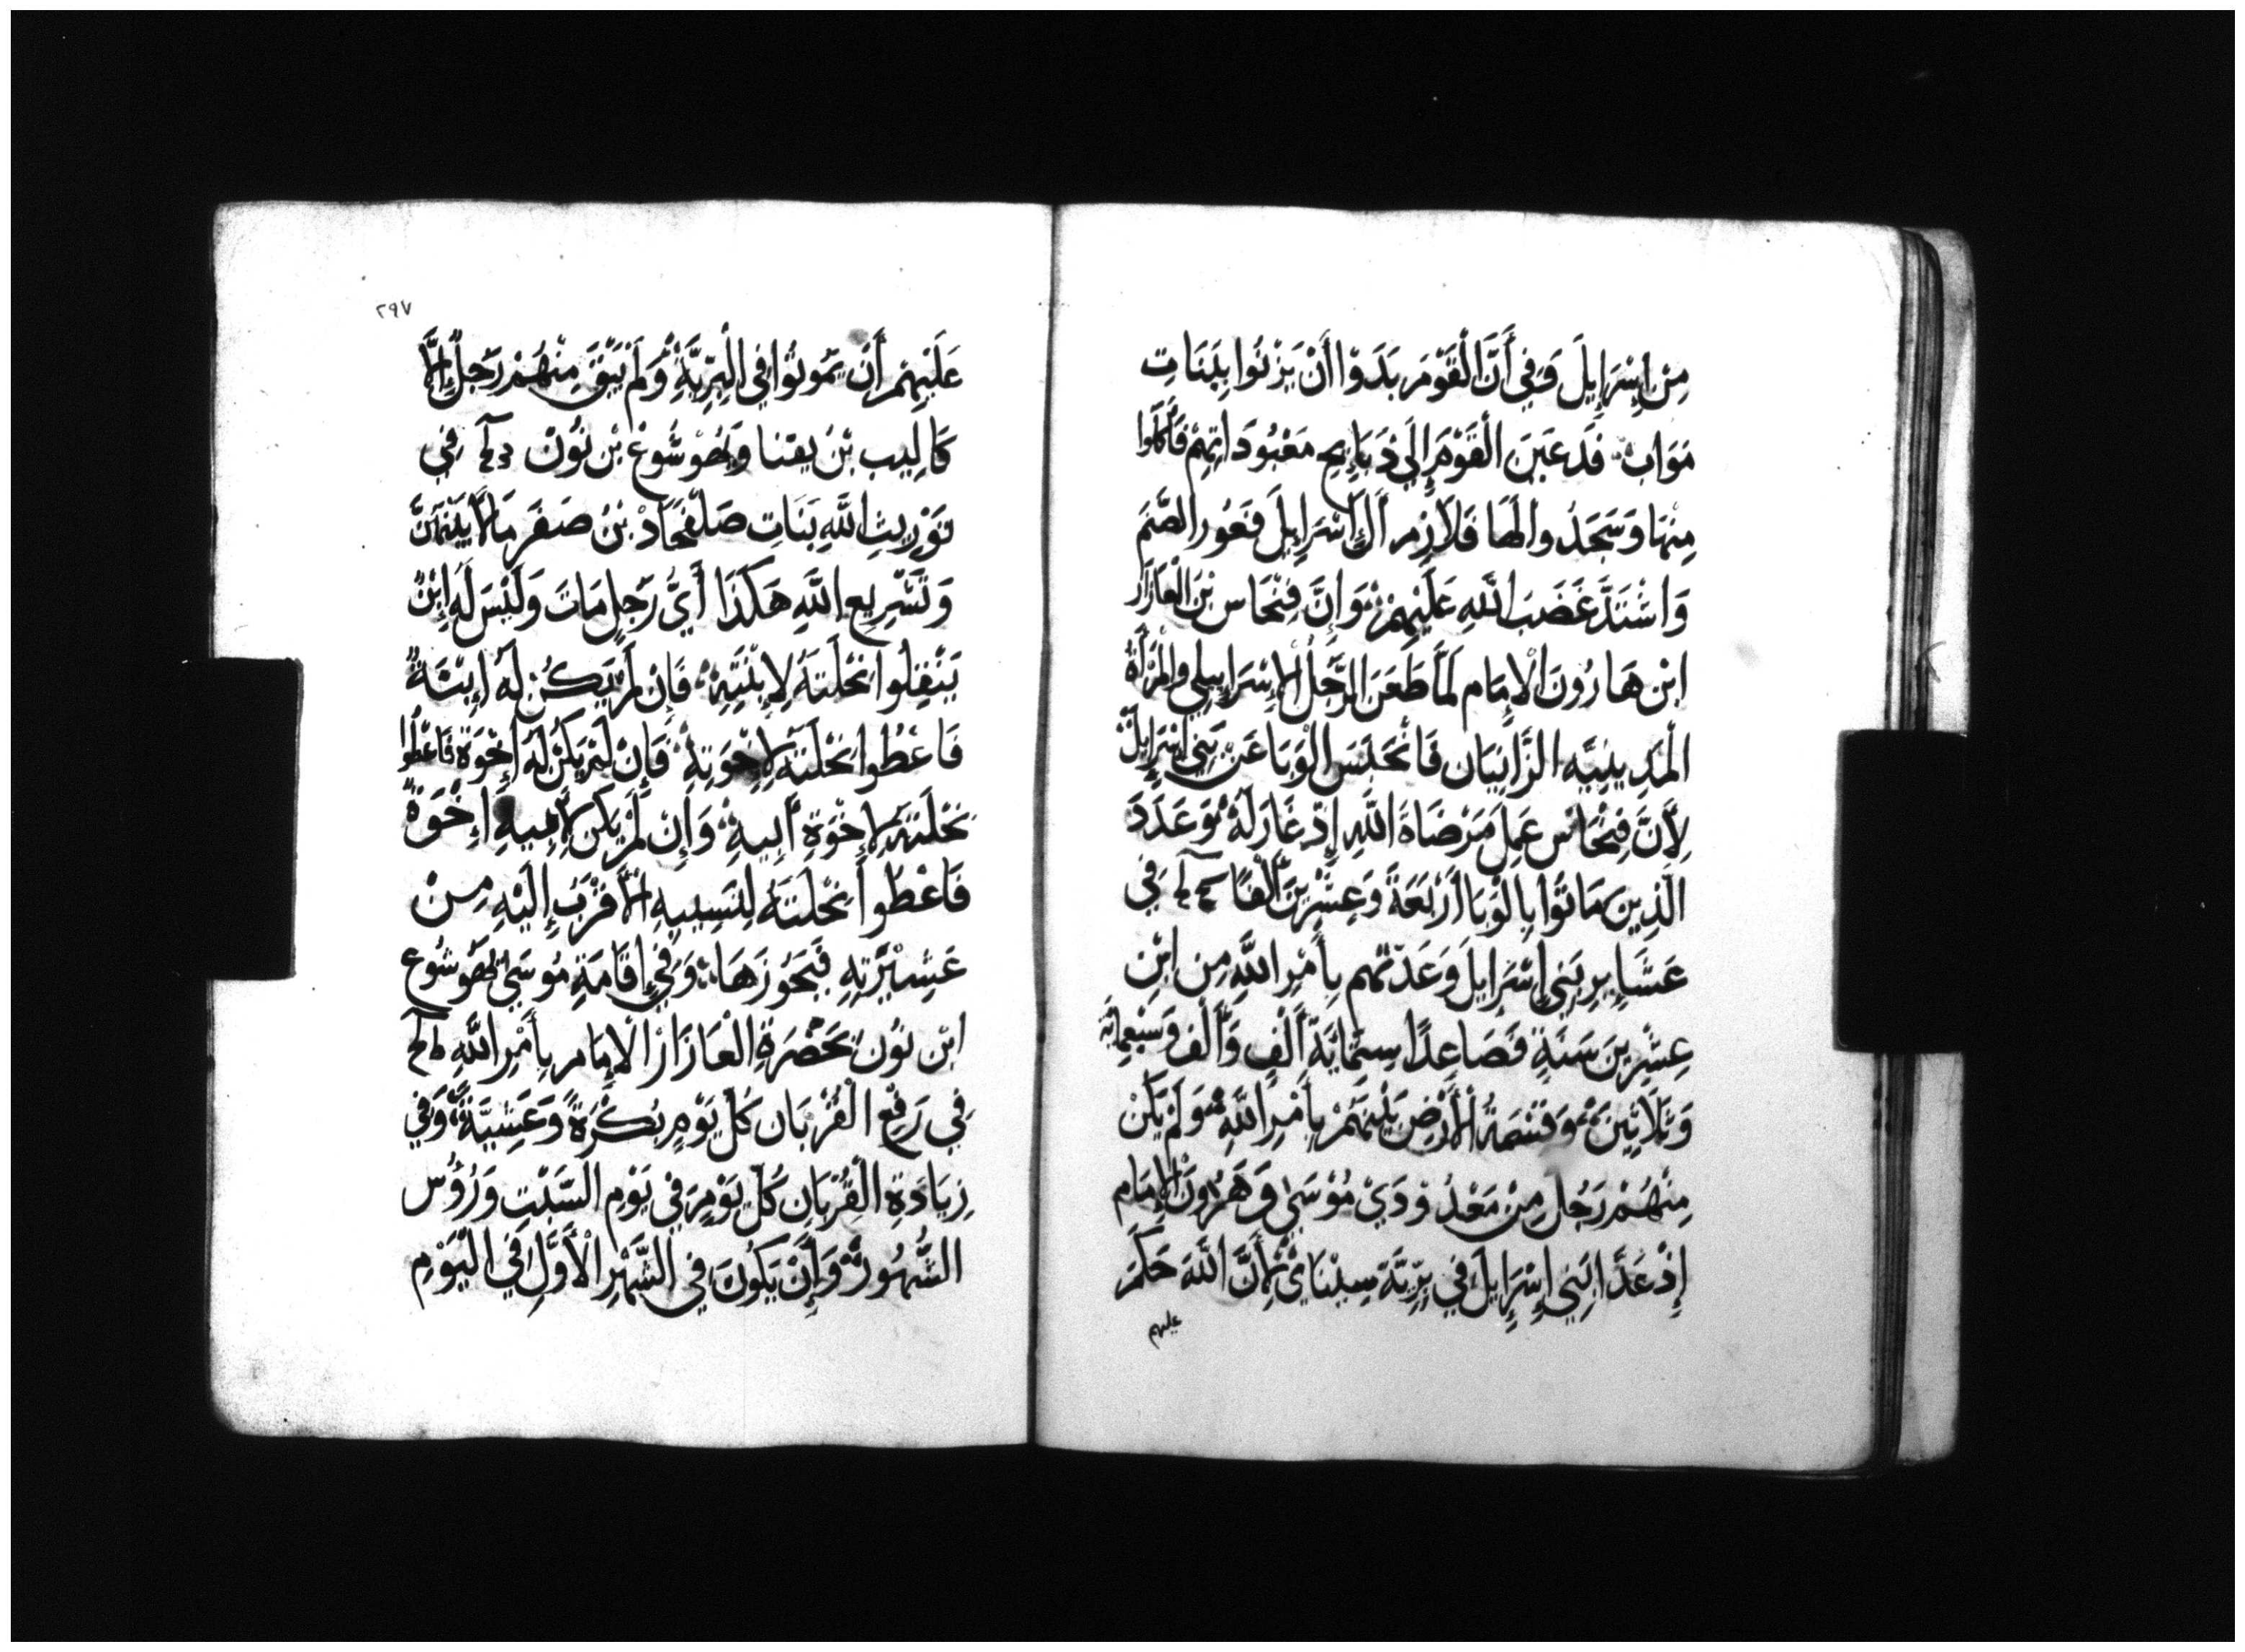 مِنْ إِسْرَايِلَ وَفِي أَنَّ الْقَوْمَ بَدَوْا أَنْ يَزْنُوا بِبَنَاتِ
مَوَاب فَدَعَيَنَ الْقَوْمَ إِلَى ذَبَايِحِ مَعْبُودَاتِهِمْ فَأَكَلُوا
مِنْهَا وَسَجَدُوا لَهَا فَلَازِم أَلُ إِسْرَايِلَ فَغُور الصَّنَمَ
وَاشْتَدَّ غَضَبَ اللَّهِ عَلَيْهِمْ وَإِنَّ فِنْحَاس بْنَ الْعَازَارَ
ابْن هَارُونَ الْإِمَام لَمَّا طَعَنَ الرَّجُلَ الْإِسْرَايِيلِي وَالْمَرْأَةُ
الْمَدِينِيَّه الزَّانِيَان فَانْحَبَسَ الْوَبَا عَنْ بَنِي إِسْرَايِلَ
لِأَنَّ فِنْحَاس عَمِلَ مَرْضَاةَ اللَّهِ إِذْ غَارَ لَهُ وَعَدَدَ
الَّذِينَ مَاتُوا بِالْوَبَا أَرْبَعَةً وَعِشْرِينَ أَلْفًا فِي
عَشَايِرِ بَنِي إِسْرَايِلَ وَعَدَتهم بِأَمْرِ اللَّهِ مِن ابْنِ
عِشْرِينَ سَنَةٍ فَصَاعِدًا سِتَّمَايَةَ أَلْفٍ وَأَلْف وَسَبْعمِايَة
وَثَلَاثِينَ وَقِسْمَةُ الْأَرْضِ بَيْنَهُمْ بِأَمْرِ اللَّهِ وَلَمْ يَكُنْ
مِنْهُمْ رَجُل مِنْ مَعْدُودَيْ مُوْسَى وَهَرُونَ الْإِمَام
إِذْ عَدَّا بَنِي إِسْرَايِلَ فِي بَرِّيَّة سِينَاي لِأَنَّ اللَّهَ حَكَمَ
عليهم
٢٩٧
عَلَيْهِمْ أَن يَمُوتُوا فِي الْبَرِّيَّةِ وَلَمْ يَبْقَ مِنْهُمْ رَجُلٌ إِلَّا
كَالِيب بْن يفنا وَيَهُوشُوعْ بْن نُوْن فِي
تَوْرِيثِ اللَّهِ بَنَاتِ صَلَفْحَادْ بْنُ صَفَر مَالَا بَيْنَهُنَّ
وَتَشْرِيع اللَّهِ هَكَذَا أَيُّ رَجُلٍ مَاتَ وَلَيْسَ لَهُ إِبْنٌ
يَنْقِلُوا نِحْلَتَهُ لِابْنَتِهِ فَإِن لَمْ يَكُنْ لَهُ إِبْنَةٌ
فَاعْطُوا نِحْلَتَهُ لِإِخْوَتِهِ فَإِنْ لَمْ يَكُنْ لَهُ إِخْوَة فَاعْطُوا
نِحْلَتَهُ لِإِخْوَةِ أَبِيهِ وَإِن لَمْ يَكُن لِأَبِيهِ إِخْوَةٌ
فَاعْطُوا نِحْلَتَهُ لِنَسِيبِهِ الْأَقْرَبُ إِلَيْهِ مِنْ
عَشِيْرَتِهِ فَيَحُوزَهَا وَفِي إِقَامَةِ مُوسَى يَهُوشُوع
ابْن نُوْن بِحَضْرَةِ الْعَازَارْ الْإِمَام بِأَمْرِ اللَّهِ
فِي رَفْع الْقُرْبَان كُلَّ يَوْمٍ بُكْرَةً وَعَشِيَّةً وَفِي
زِيَادَةِ الْقُرْبَان كُلَّ يَوْم وَفِي يَوْمِ السَّبْتِ وَرُؤُس
الشُّهُورْ وَإِنْ يَكُونَ فِي الشَّهْرِ الْأَوَّلِ فِي الْيَوْمِ